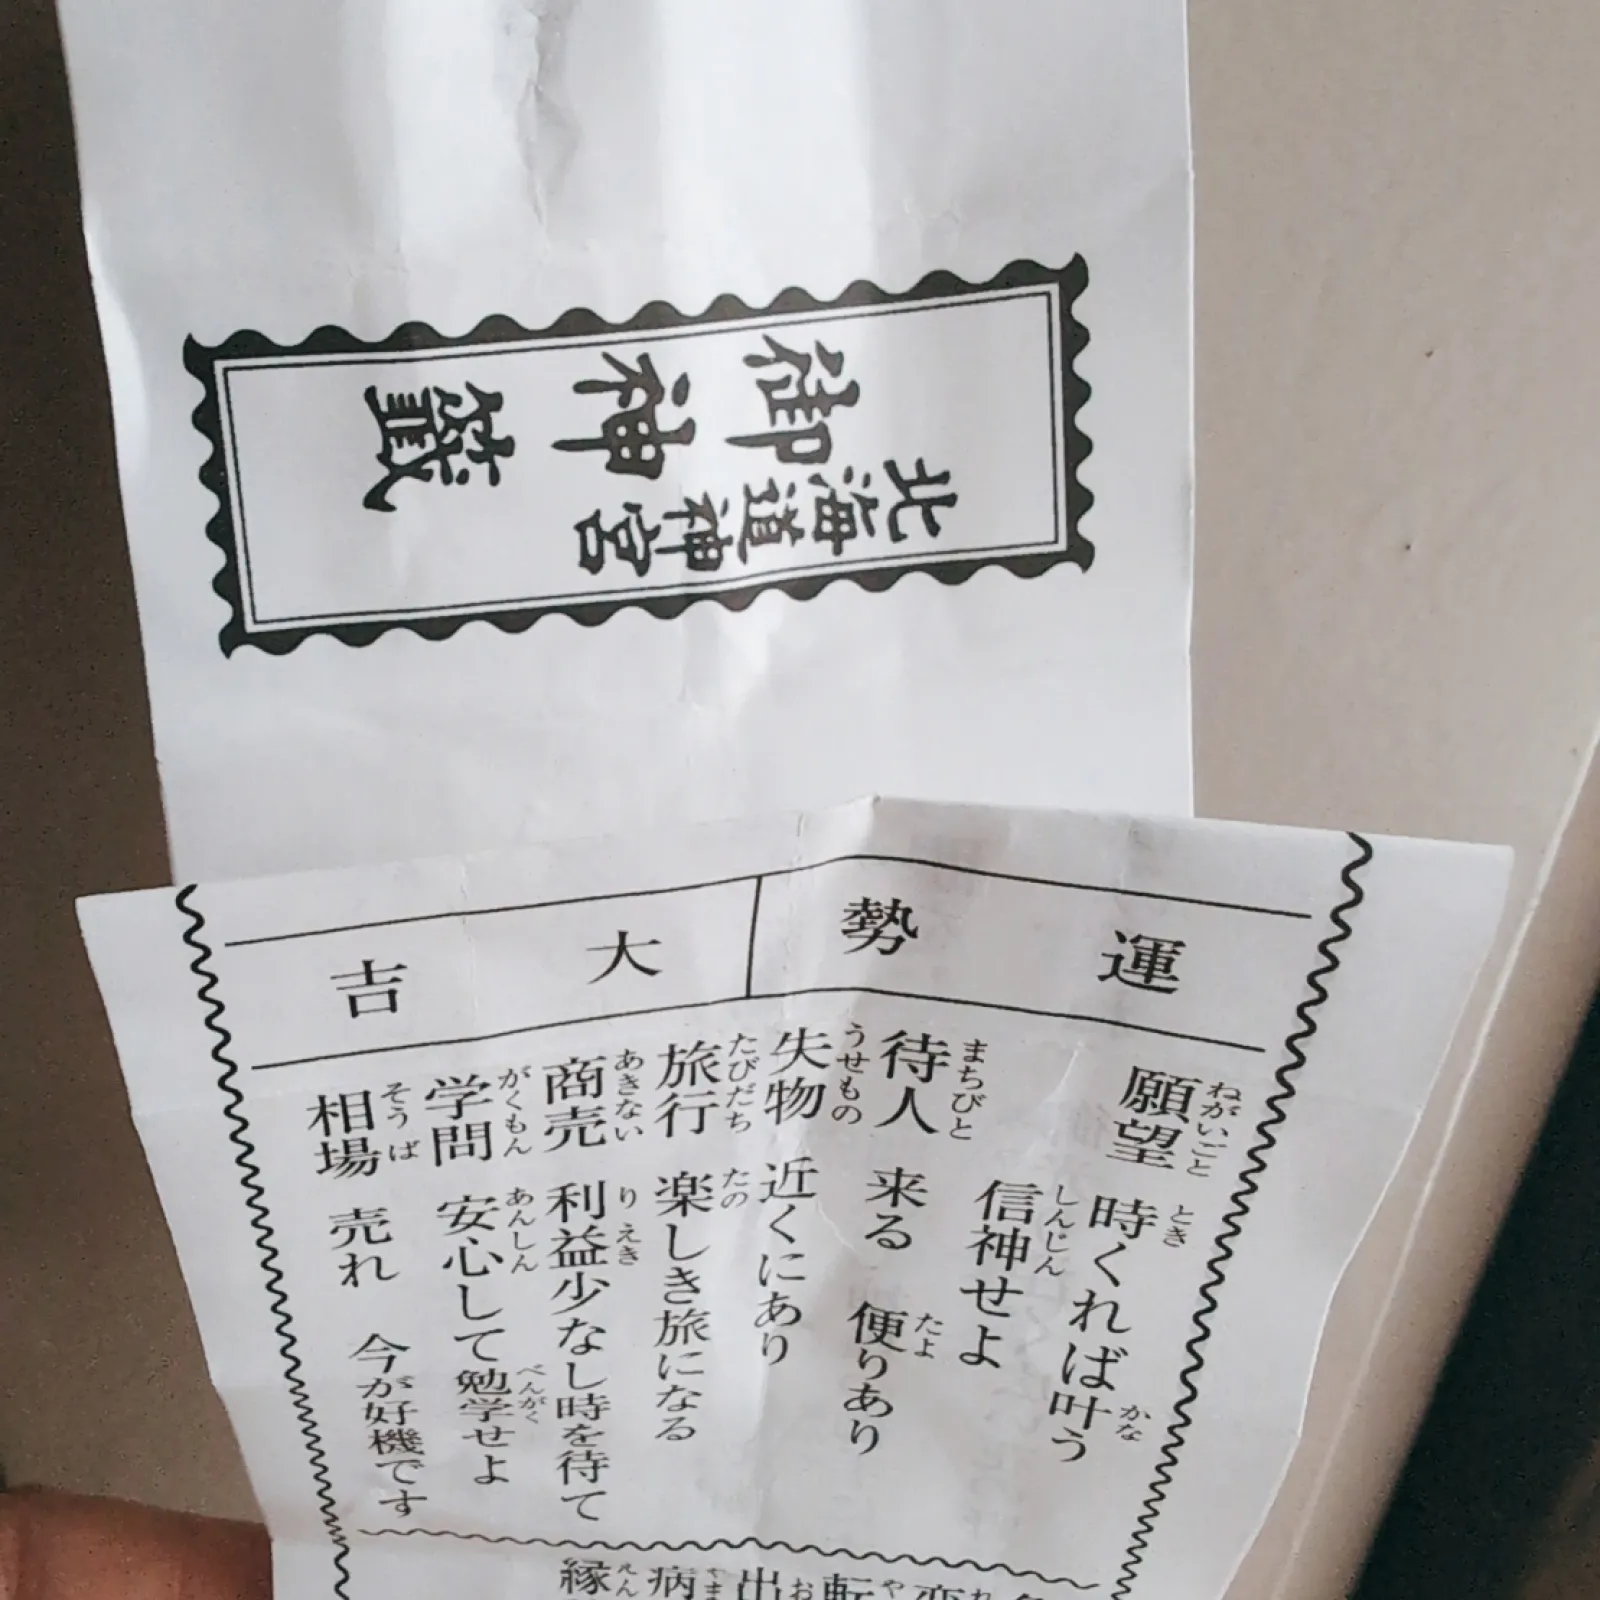 御神籤
北海道神宮
運勢 大吉
願望 時くれば叶う
ねがいごと とき かな
信神せよ
しんじん
待人 来る 便りあり
まちびと たよ
失物 近くにあり
うせもの
旅行 楽しき旅になる
たびだち たの
商売 利益少なし時を待て
あきない りえき
学問 安心して勉学せよ
がくもん あんしん べんがく
相場 売れ 今が好機です
そうば